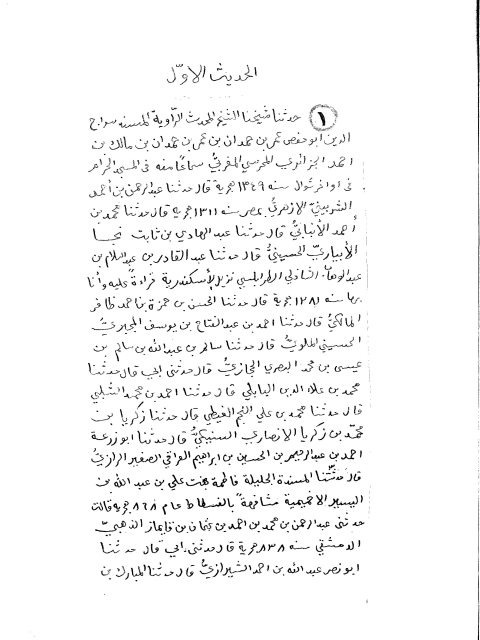 الحديث الاوّل
١ حدثنا شيخنا الشيخ المحدث الرّاوية المسند سراج
الدين ابو حفص عمر بن حمدان بن عمر بن حمدان بن مالك بن
احمد الجزائري المحرسي المغربي سماعًا منه في المسجد الحرام
في اواخر شوال سنه ١٣٤٩ هجرية قال حدثنا عبدالرحمن بن أحمد
الشربينيّ الازهريّ بمصر سنه ١٣١١ هجرية قال حدثنا محمد بن
أحمد الأنبابيّ قال حدثنا عبد الهادي بن ثابت نجا
الأبياريّ الحسينيّ قال حدثنا عبد القادر بن عبدالسلام بن
عبدالوهاب الشاذلي الطرابلسي نزيل الإسكندرية قراءةً عليه وأنا
بها سنه ١٢٨١ هجرية قال حدثنا الحسن بن حمزة بن احمد ظافر
المالكيّ قال حدثنا احمد بن عبد الفتاح بن يوسف المجيريّ
الحسيني الملويّ قال حدثنا سالم بن عبدالله بن سالم بن
عيسى بن محمد البصري الحجازيّ قال حدثنى ابي قال حدثنا
محمد بن علاء الدين البابلي قال حدثنا احمد بن محمد الشلبي
قال حدثنا محمد بن علي النجم الغيطي قال حدثنا زكريا بن
محمّد بن زكريا الانصاري السنيكيّ قال حدثنا ابو زرعة
احمد بن عبدالرحيم بن الحسين بن ابراهيم العراقي الصغير الرازيّ
قال حدثتنا المسندة الجليلة فاطمة بنت علي بن عبد الله بن
اليسير الاخميمية مشافهةً بالفسطاط عام ٨٦٨ هجرية قالت
حدثنى عبدالرحمن بن محمد بن احمد بن عثمان بن قايماز الذهبيّ
الدمشقي سنه ٨٣٨ هجرية قال حدثنى ابي قال حدثنا
ابو نصر عبدالله بن احمد الشيرازيّ قال حدثنا المبارك بن